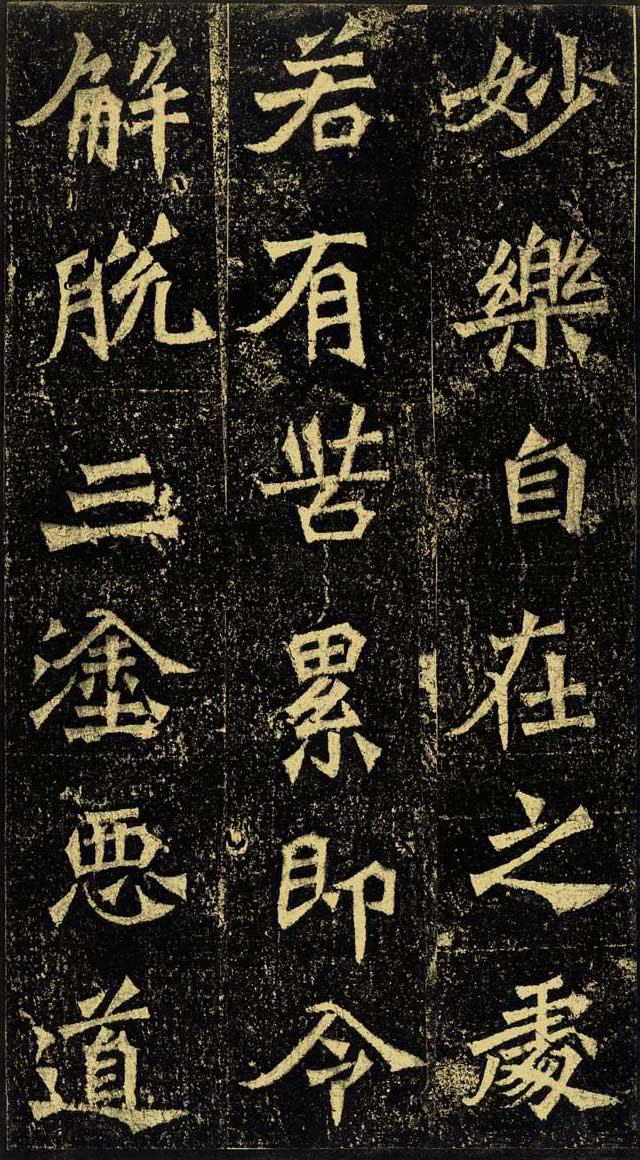 妙樂自在之處
若有苦累即令
解脱三塗惡道